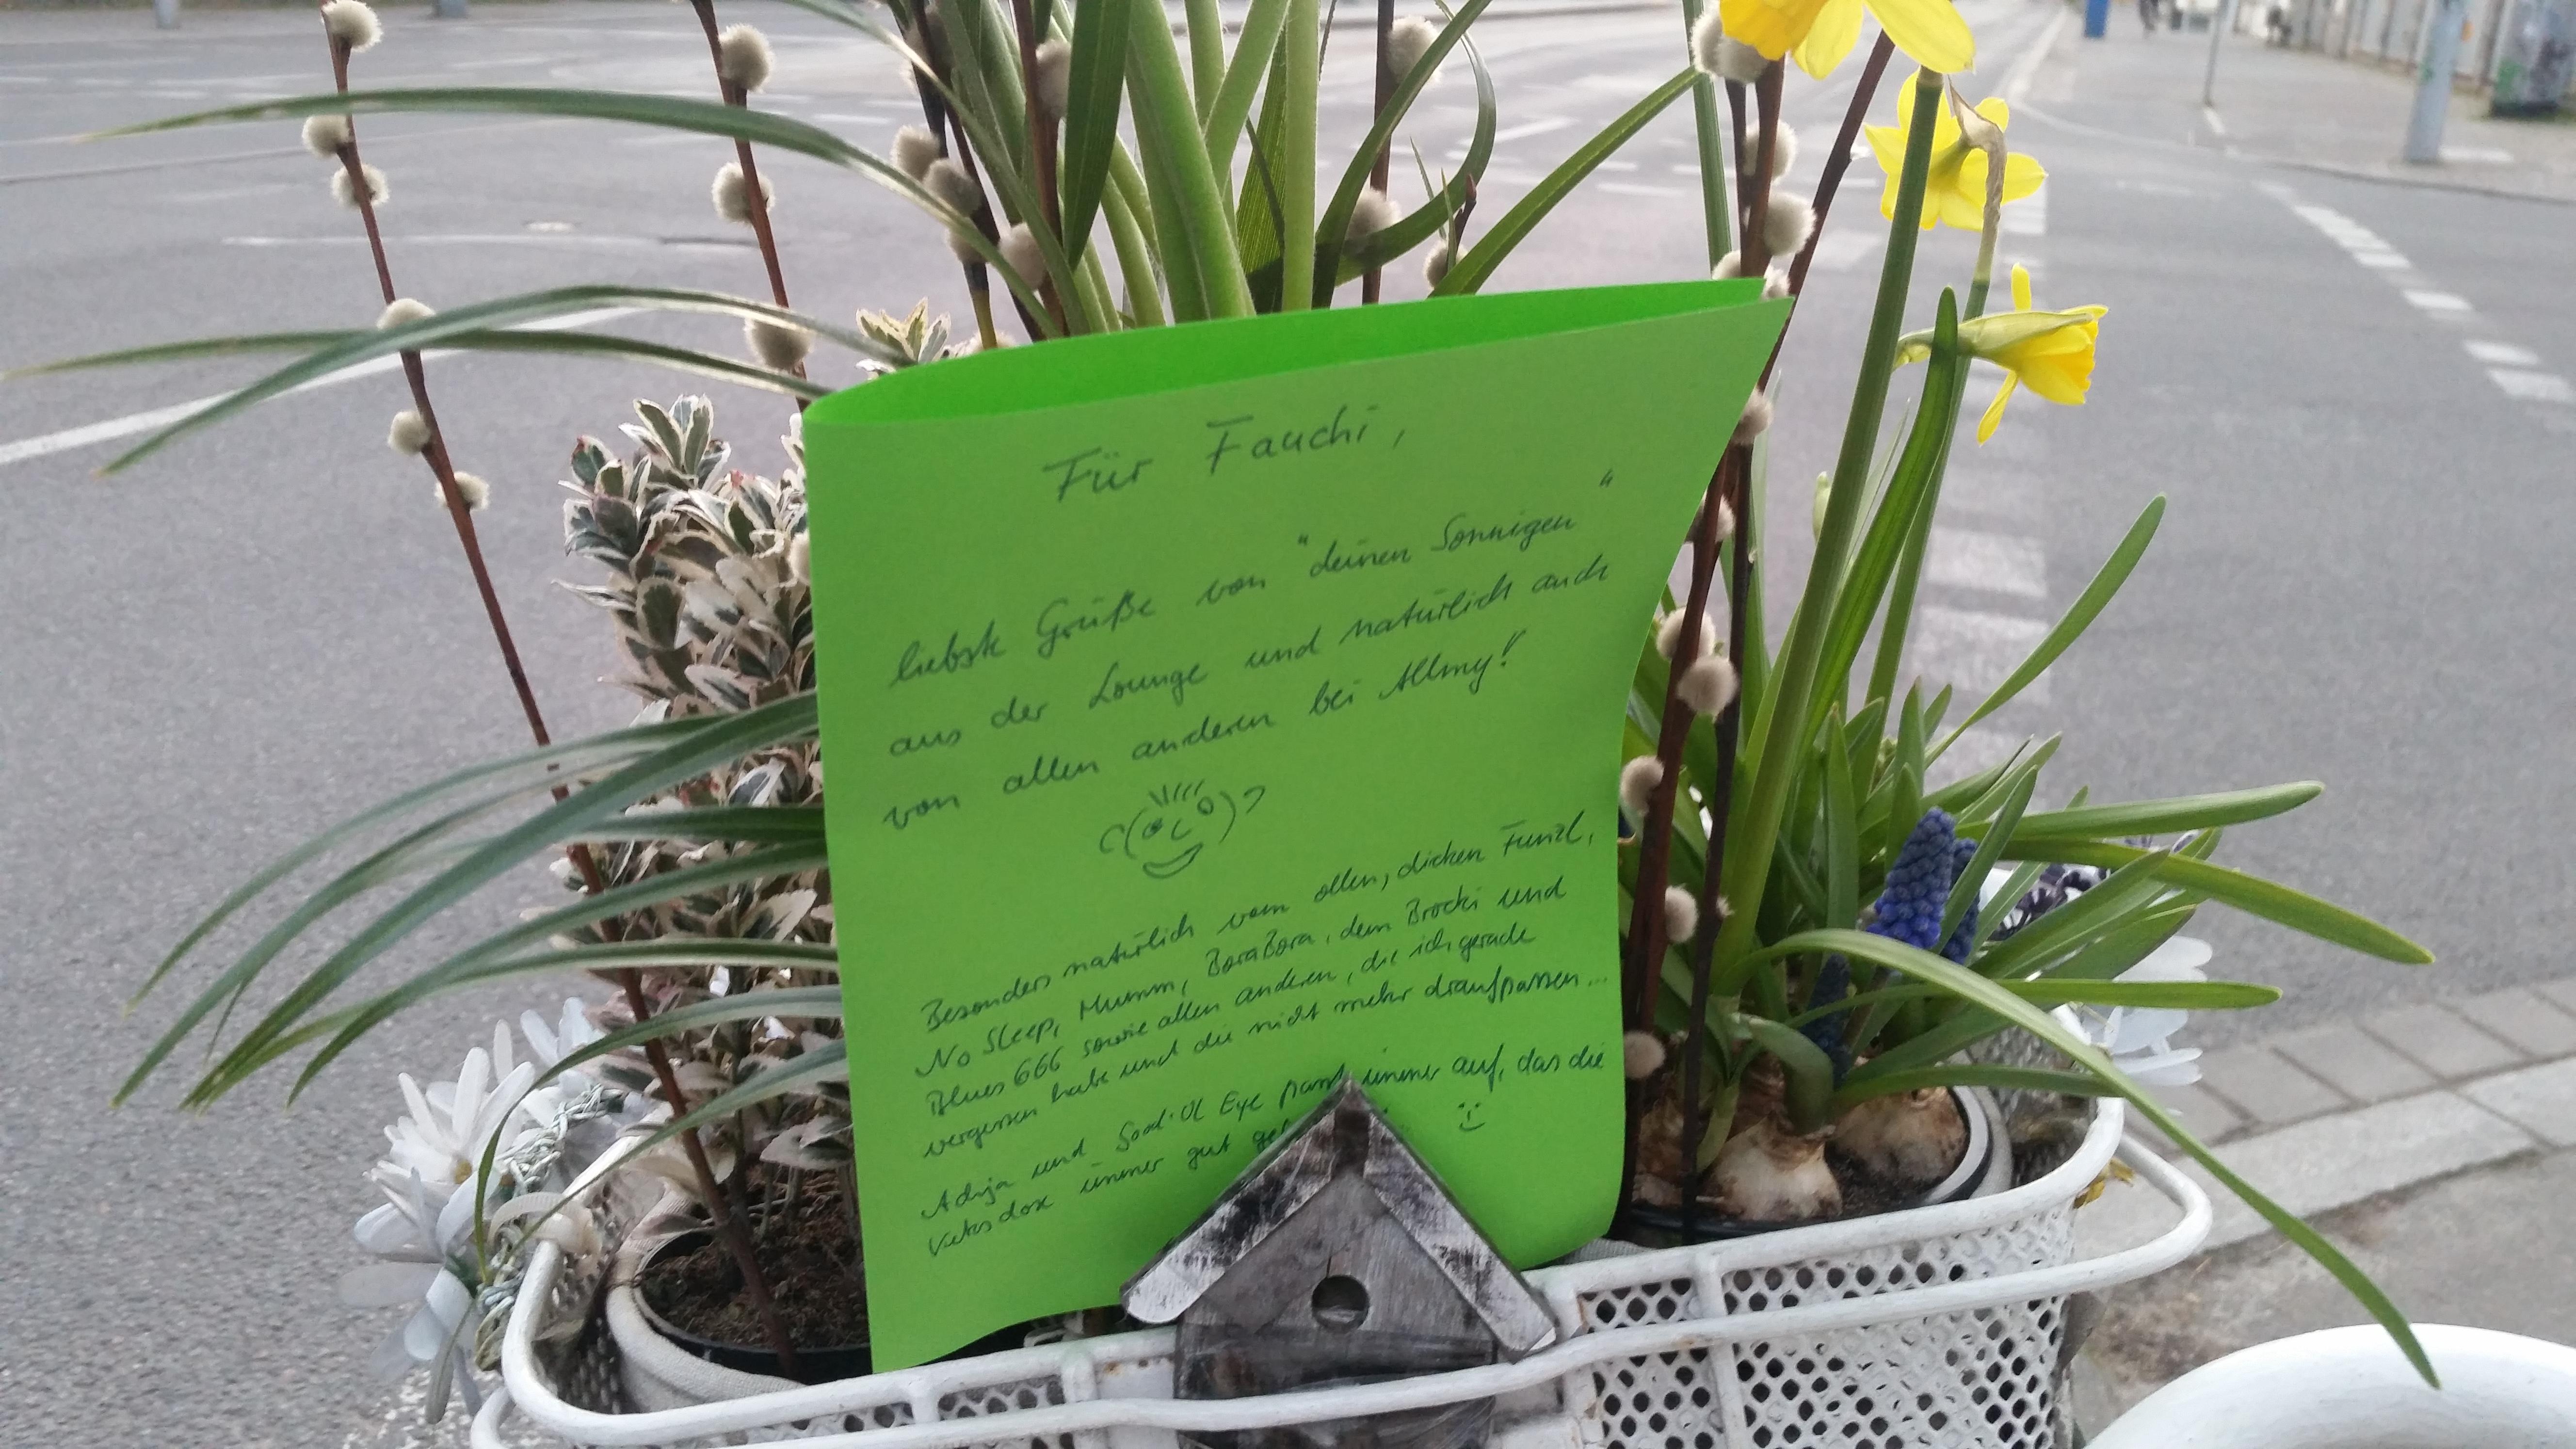 Für Fauchi,
liebste Grüße von "deinen Sonnigen"
aus der Lounge und natürlich auch
von allen anderen bei Allmy!
Besonders natürlich vom ollen, dicken Funzl,
No Sleep, Mumm, BoraBora, dem Brocki und
Blues 666 sowie allen anderen, die ich gerade
vergessen habe und die nicht mehr draufpassen...
Adija und Soal'Ol Eye passt immer auf, das die
Keksdose immer gut